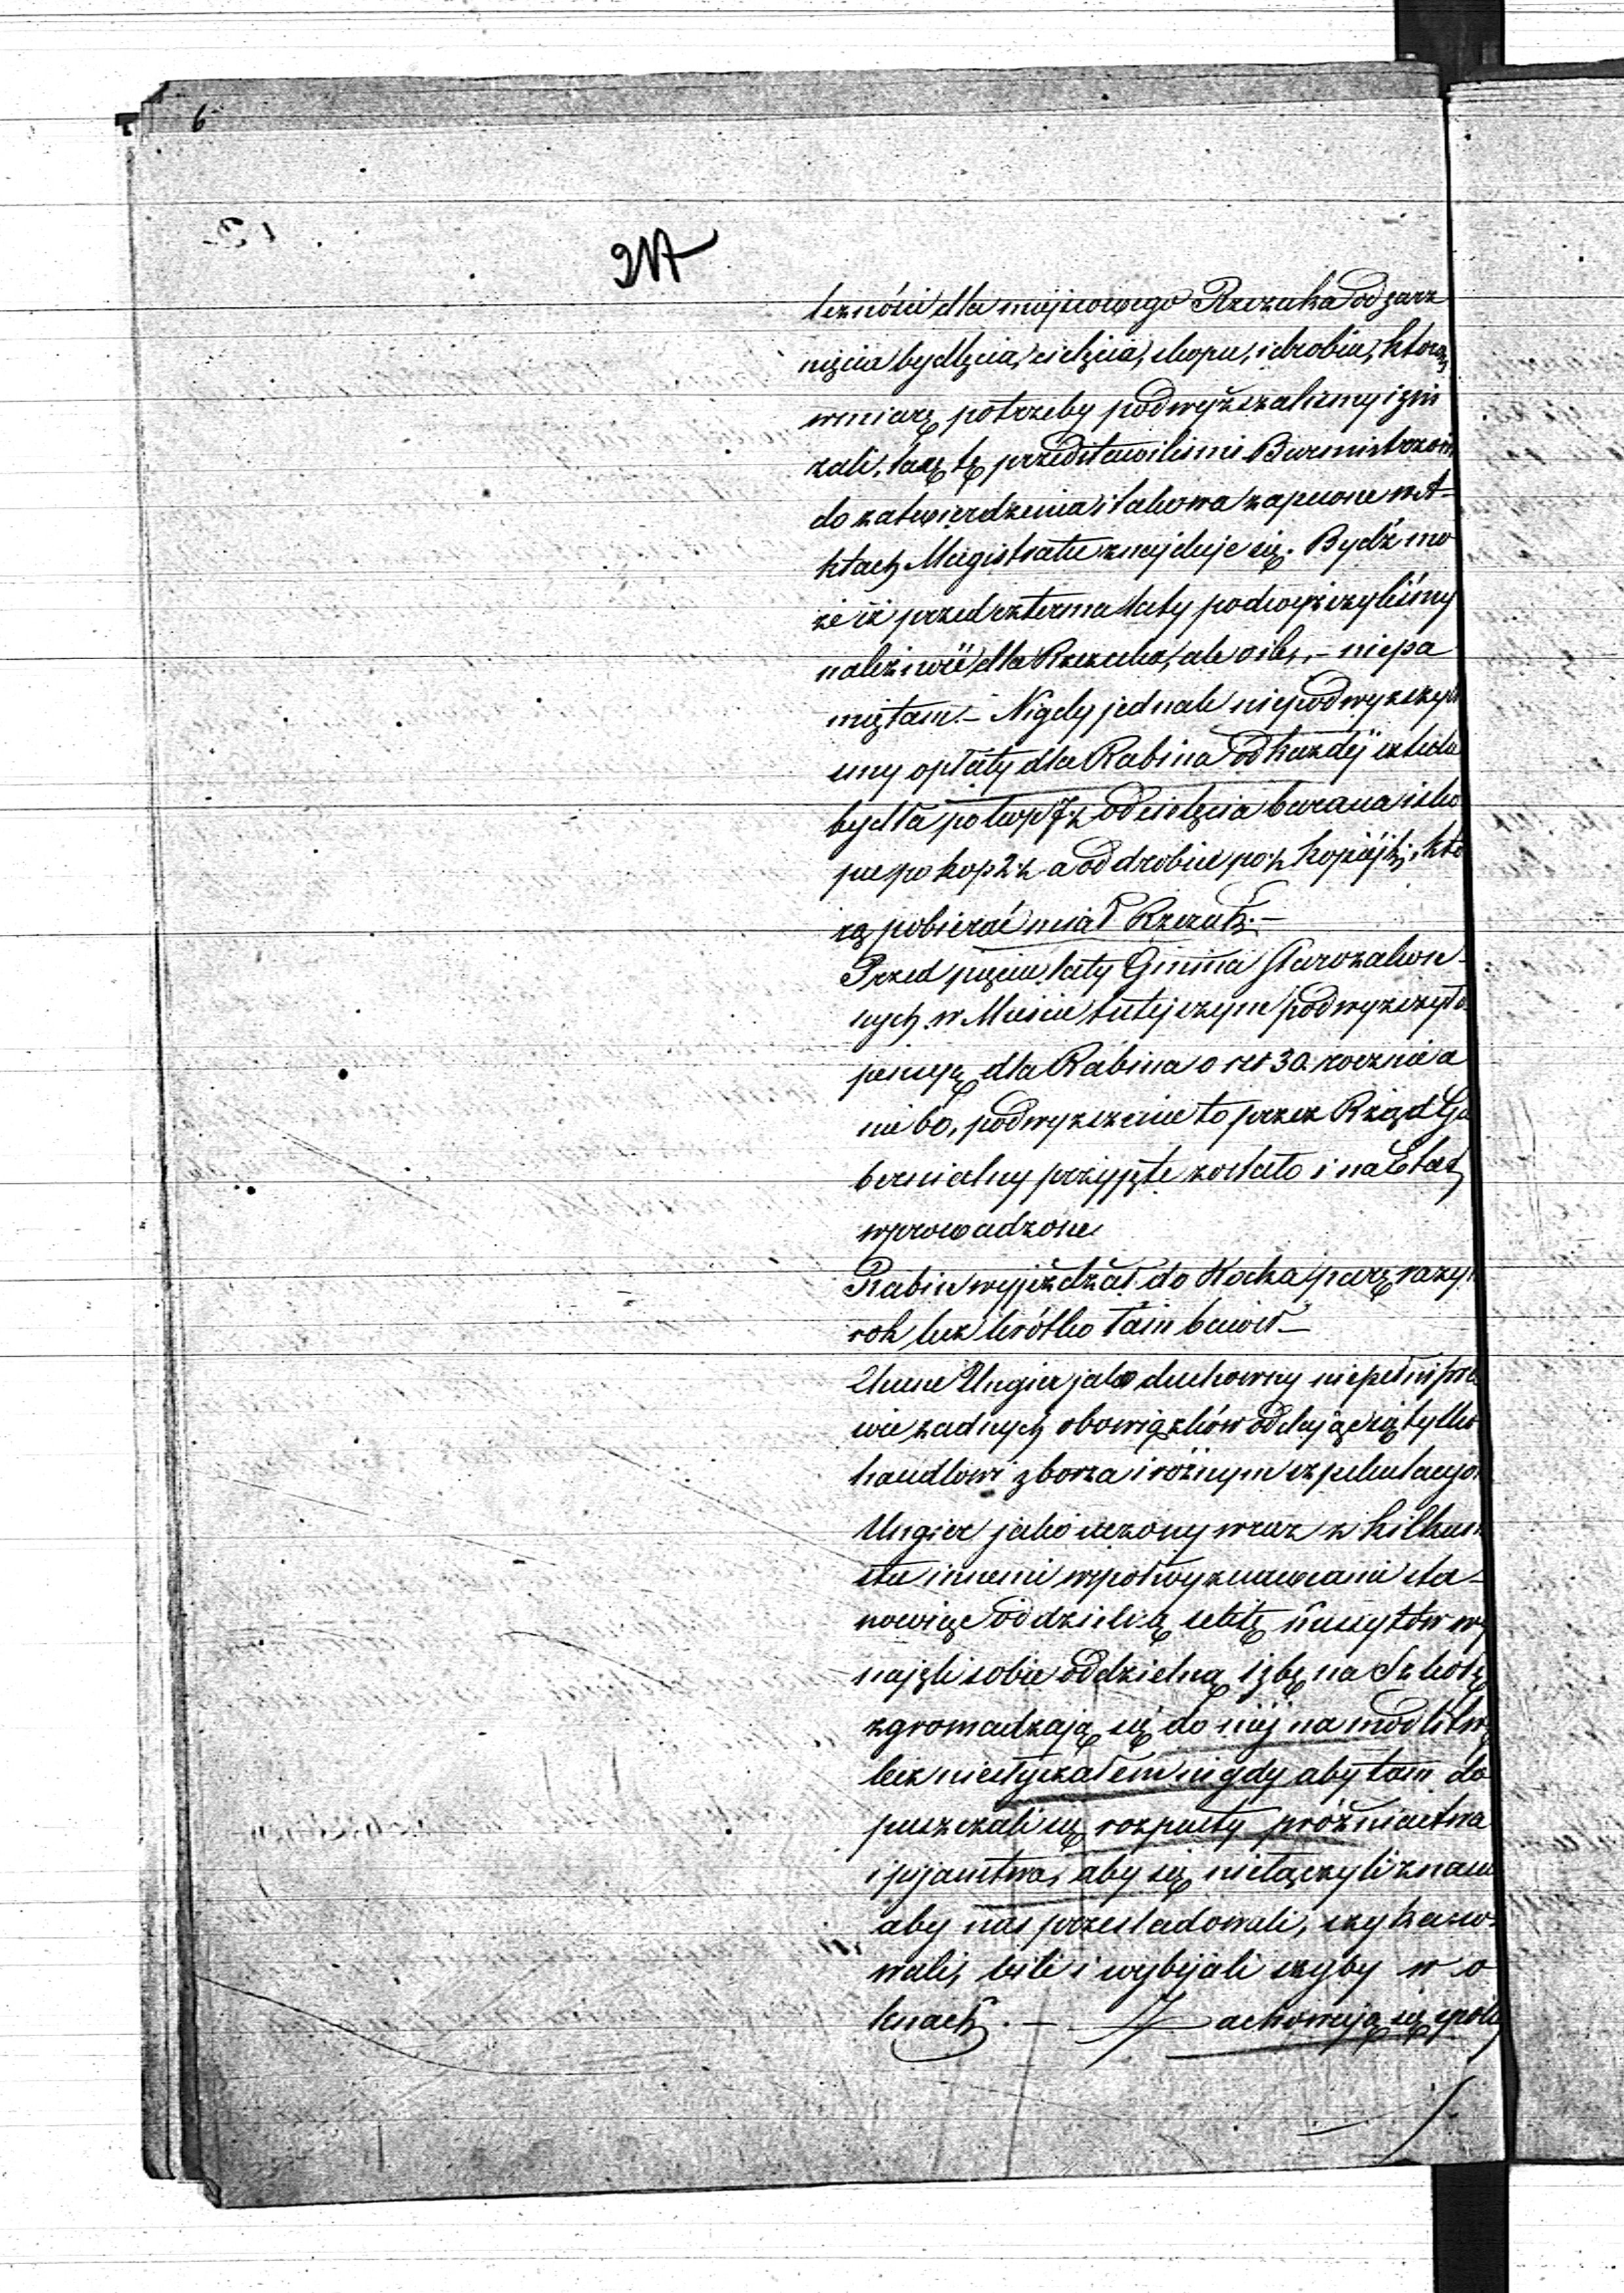 6
217
leżności dla miejscowego Rzezaka od zarz
nięcia bydlęcia, cielęcia, skopu, i drobiu, którą
w miarę potrzeby podwyższalismy i zni
żali, taxę tę przedstawilismi Burmistrzowi
do zatwierdzenia i takowa zapewne w A-
ktach Magistratu znajduje się. Bydź mo
że iż przed czterma laty podwyższyliśmy
należność dla Rzezaka, ale o ile, – niepa
miętam. – Nigdy jednak niepodwyższyli
smy opłaty dla Rabina od każdéj sztuki
bydła po kop 7½ od cielęcia barana i sko
pu po kop 2½ a od drobiu po ½ kopiéjki, któ
rą pobierać miał Rzezak. –
Przed pięciu laty Gmina Starozakon-
nych w Mieście tutejszym podwyższyła
pensyę dla Rabina o rs 30. rocznie a
nie 60, podwyższenie to przez Rząd Gu
bernialny przyjęte zostało i na Etat
wprowadzone
Rabin wyjeżdżał do Kocka parę razy w
rok lecz krótko tam bawił –
Chune Ungier jako duchowny niepełni pra
wie żadnych obowiązków oddając się tylko
handlowi zboża i różnym szpekulacyom
Ungier jako uczony wraz z kilkuna
stu innemi współwyznawcami sta-
nowiąc oddzielną sektę Hussytów wy
najęli sobie oddzielną izbę na Szkołę
zgromadzają się do niéj na modlitwę
lecz niesłyszałem nigdy aby tam do
puszczali się rozpusty próżniactwa
i pijaństwa, aby się niełączyli z nami
aby nas prześladowali, szykano-
wali, bili i wybijali szyby w o
knach. – Zachowują się spokoj